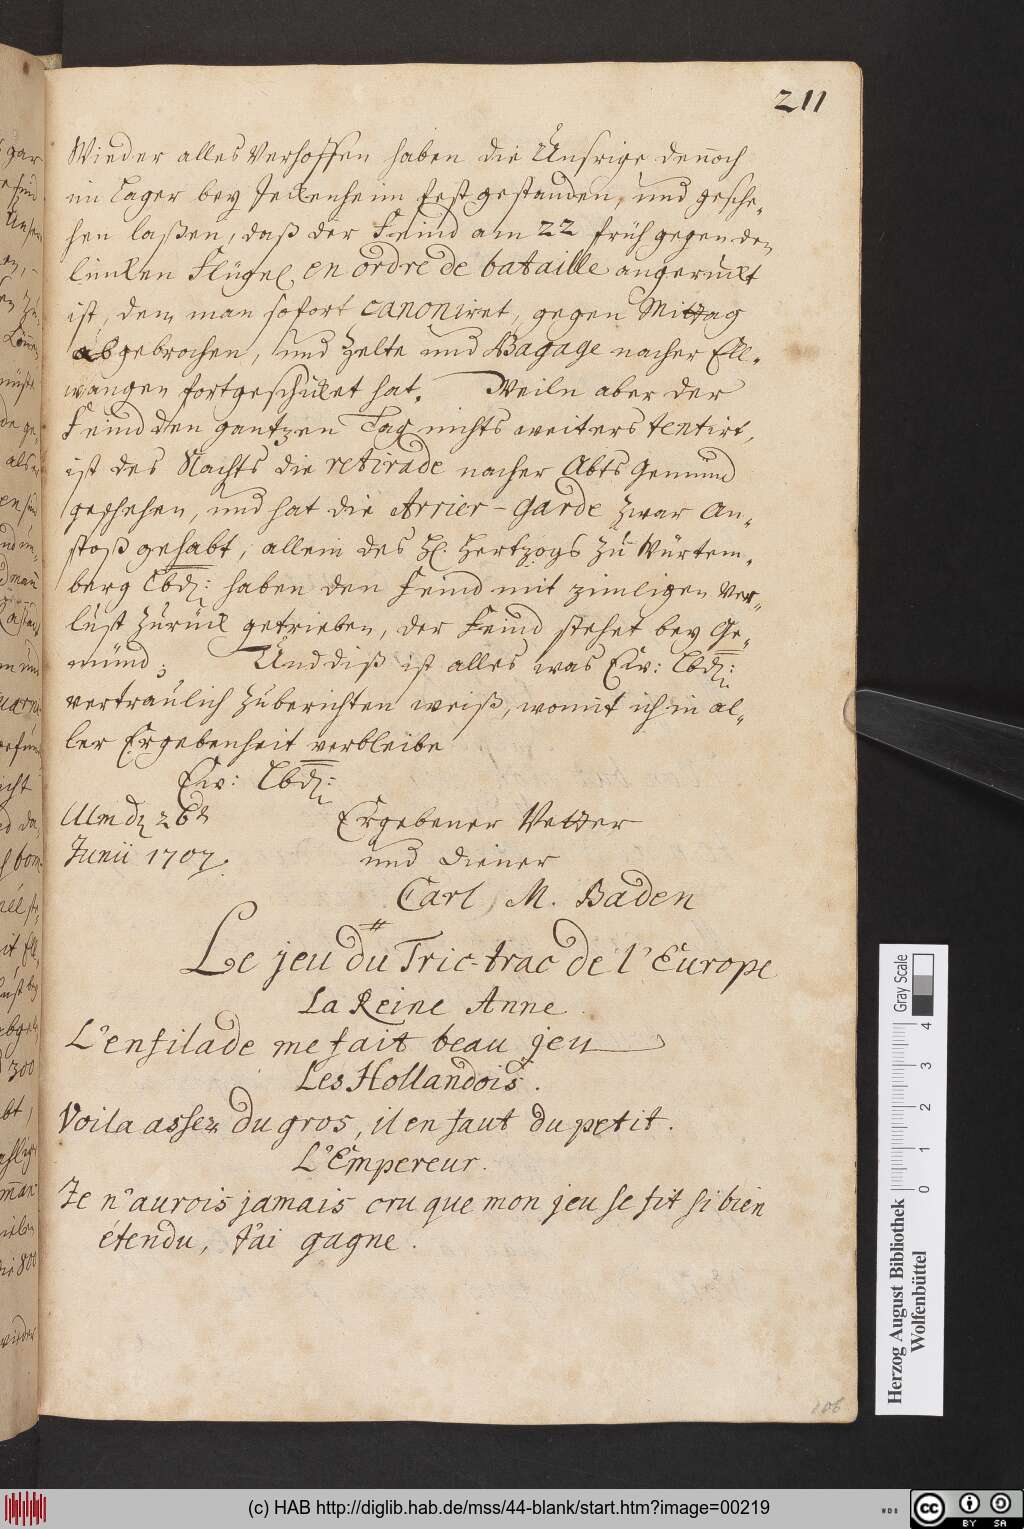 211
Wieder alles Verhoffen haben die Unsrige dennoch
im Lager bey Jeckenheim fest gestanden, und gesche-
hen laßen, daß der Feind am 22 früh gegen den
lincken Flügel en ordre de bataille angeruckt
ist, dem man sofort canoniret, gegen Mittag
abgebrochen, und Zelte und Bagage nacher Ell-
wangen fortgeschicket hat. Weiln aber der
Feind den gantzen Tag nichts weiters tentirt,
ist des Nachts die retirade nacher Abts Gemünd
geschehen, und hat die Arrier-Garde zwar An-
stoß gehabt, allein des H. Hertzogs zu Würtem-
berg Lbd: haben den Feind mit zimligen Ver-
lust zurück getrieben, der Feind stehet bey Ge-
münd; Und diß ist alles was Ew: Lbd:
vertraulich zu berichten weiß, womit ich in al-
ler Ergebenheit verbleibe
Ew: Lbd:
Ulm d. 26t Ergebener Vetter
Junii 1707. und Diener
Carl M. Baden
Le jeu du Tric-trac de l'Europe
La Reine Anne
L'enfilade me fait beau jeu
Les Hollandois.
Voila assez du gros, il en faut du petit.
L'Empereur.
Je n'aurois jamais cru que mon jeu se fit si bien
étendu, J'ai gagne.
106
Herzog August Bibliothek
Wolfenbüttel
Gray Scale
0 1 2 3 4
(c) HAB http://diglib.hab.de/mss/44-blank/start.htm?image=00219
cc BY SA